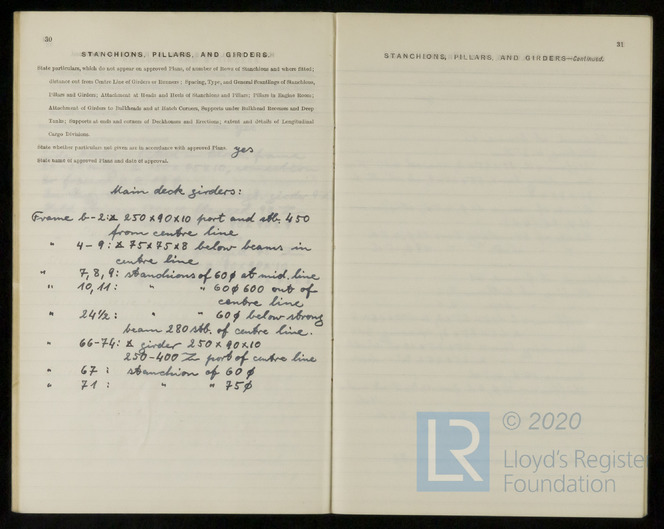 30
STANCHIONS, PILLARS, AND GIRDERS.
State particulars, which do not appear on approved Plans, of number of Rows of Stanchions and where fitted;
distance out from Centre Line of Girders or Runners; Spacing, Type, and General Scantlings of Stanchions,
Pillars and Girders; Attachment at Heads and Heels of Stanchions and Pillars; Pillars in Engine Room;
Attachment of Girders to Bulkheads and at Hatch Corners, Supports under Bulkhead Recesses and Deep
Tanks; Supports at ends and corners of Deckhouses and Erections; extent and details of Longitudinal
Cargo Divisions.
State whether particulars not given are in accordance with approved Plans. yes
State name of approved Plans and date of approval.
Main deck girders:
Frame b-2: 250 x 90 x 10 port and stb. 450
from centre line
" 4-9: 75 x 75 x 8 below beams in
centre line
" 7, 8, 9: stanchions of 60 ø at mid. line
" 10, 11: " " 60 ø 600 out of
centre line
" 24½: " " 60 ø below strong
beam 280 stb. of centre line.
" 66-74: girder 250 x 90 x 10
250-400 port of centre line
" 67: stanchion of 60 ø
" 71: " " 75 ø
31
STANCHIONS, PILLARS, AND GIRDERS—Continued.
LR
© 2020
Lloyd's Register
Foundation